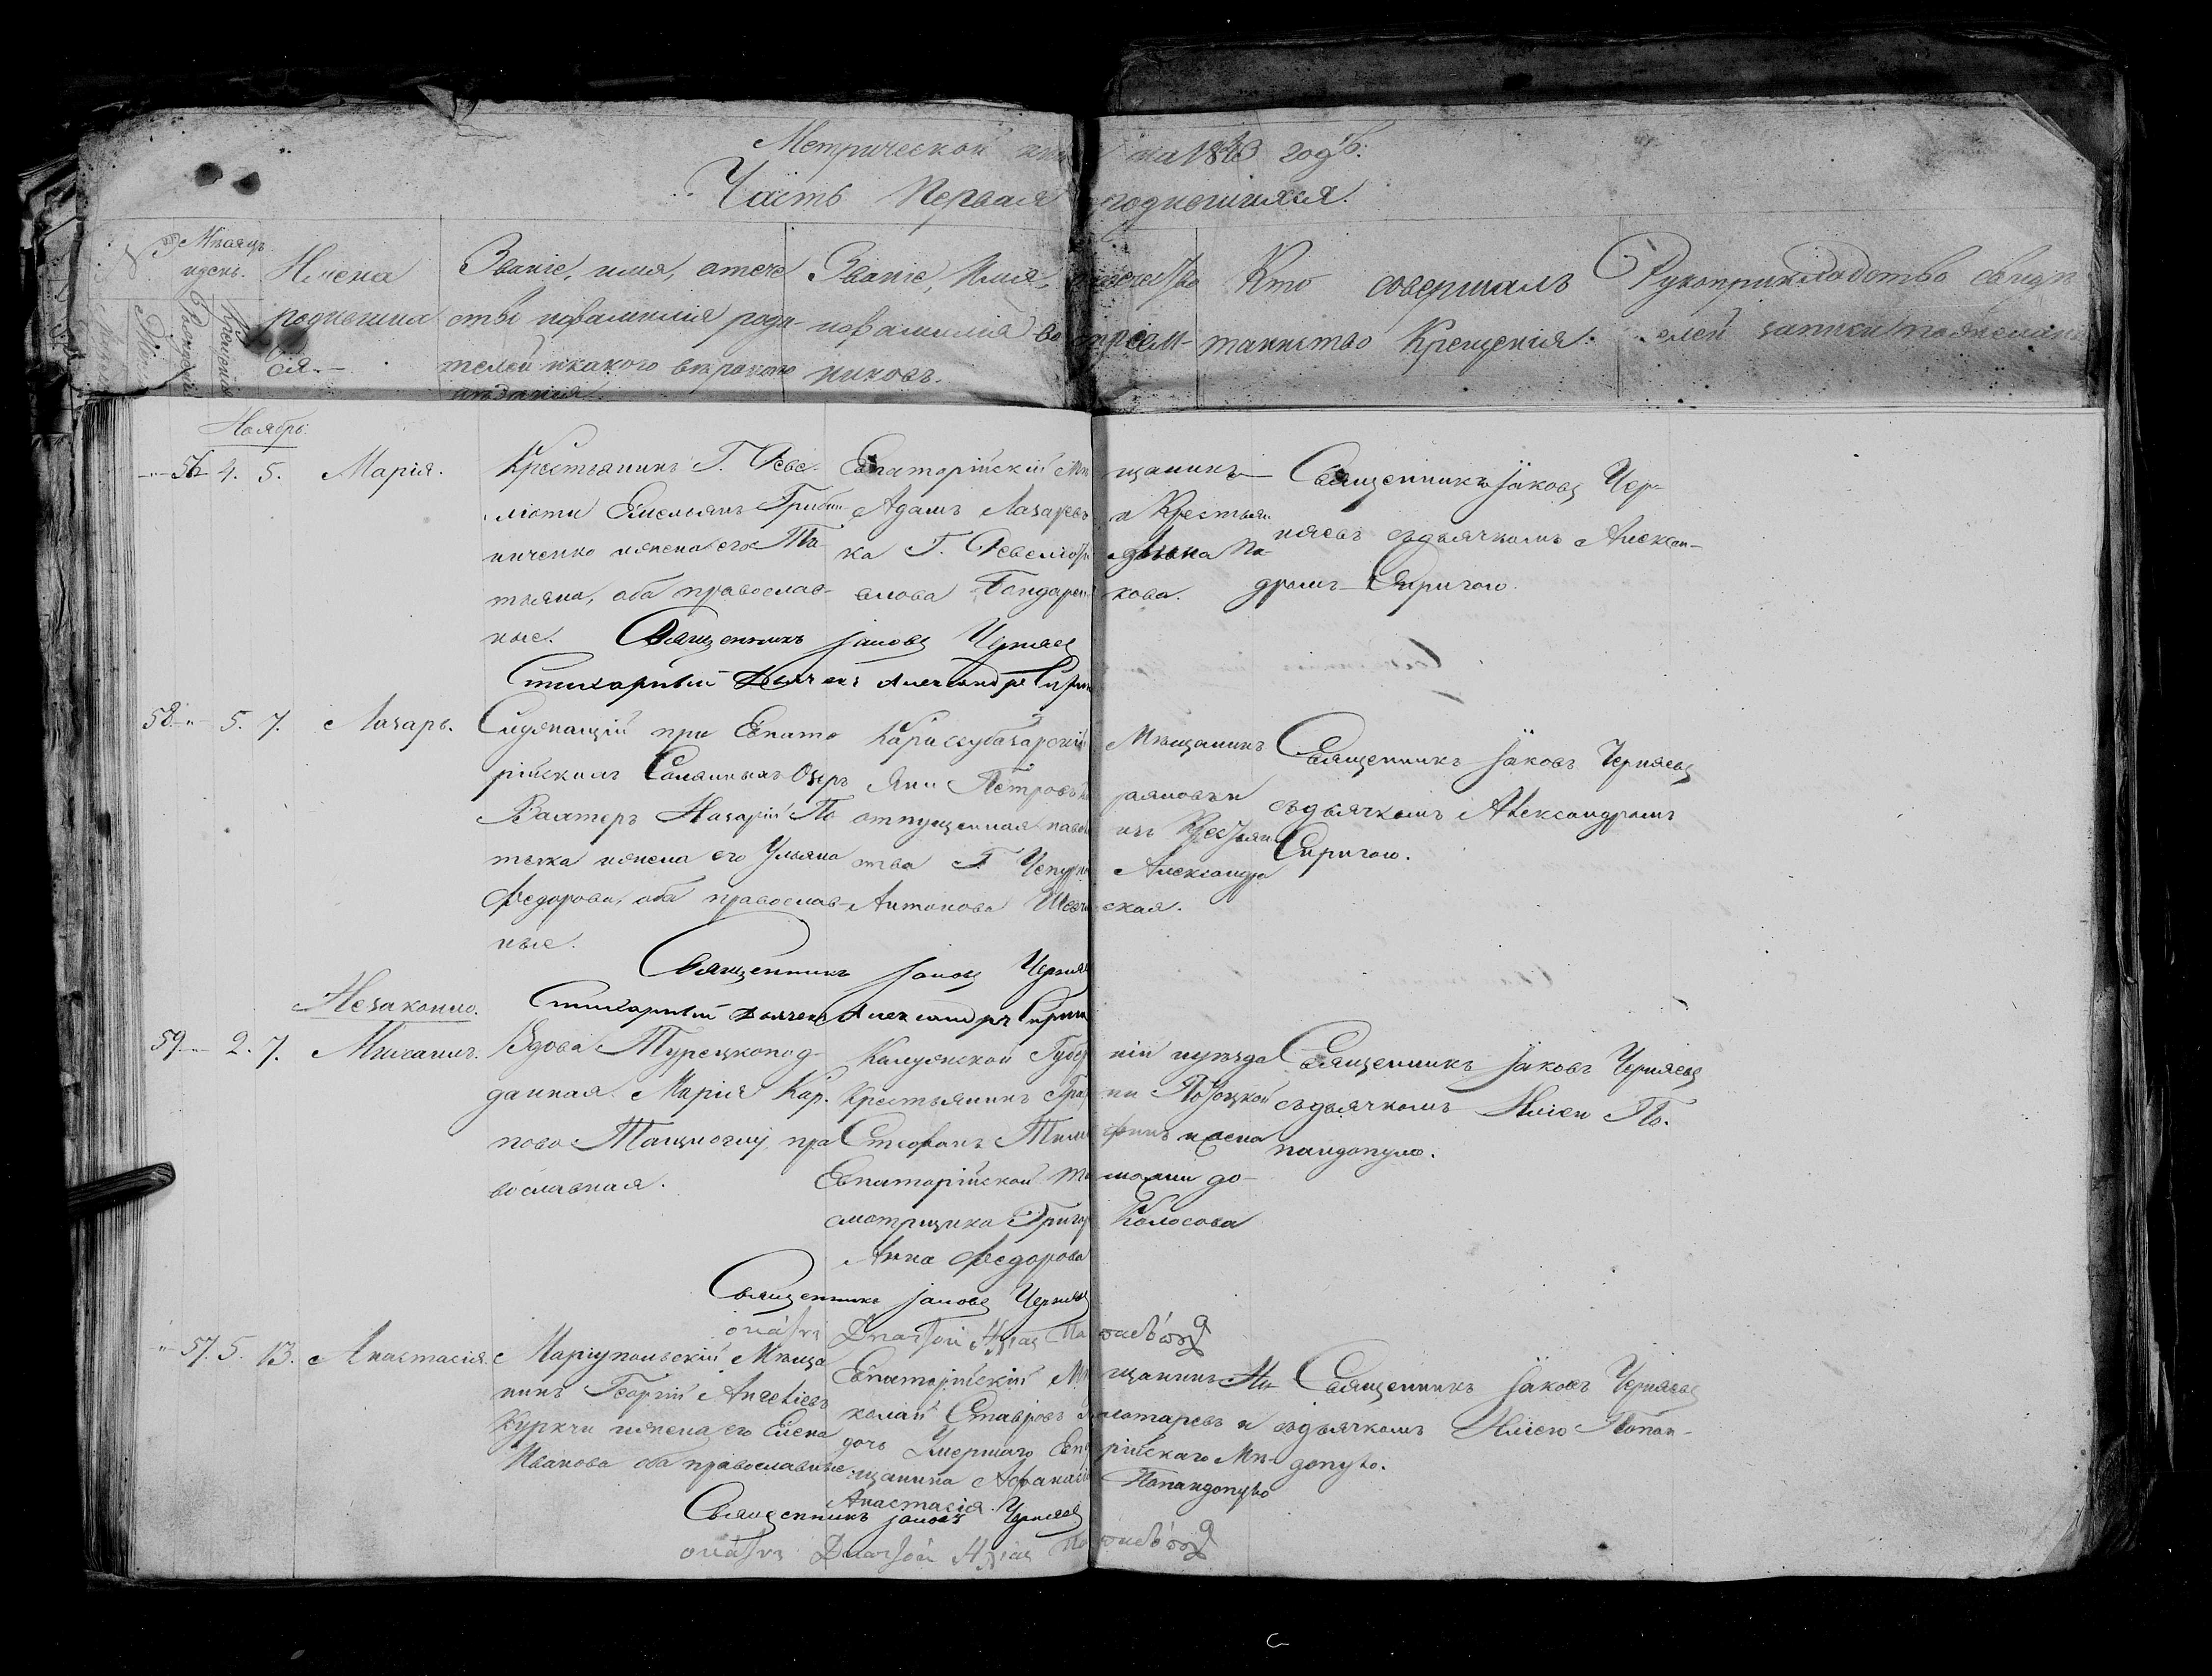 Метрической на 1843 годъ.
Часть Первая о родившихся.
Мѣсяцъ
и день.
Рожденія
Крещенія
Имена
родивших
ся.
Званіе, имя, отече
ство и фамилія роди
телей и какого вѣроиспо
вѣданія.
Званіе, Имя, отечество
и фамилія воспріем-
никовъ.
Кто совершалъ
таинство Крещенія.
Рукоприкладство свидѣт
елей записи по желанію
Ноябрь.
56 4. 5. Марія.
Крестьянинъ Г. Реве-
ліоти Емельянъ Грибин-
ниченко и жена его Та-
тьяна, оба православ-
ные.
Евпаторійскій Мѣщанинъ
Адамъ Лазаревъ и Крестьян
ка Г. Ревеліоти Домна Па-
влова Бондаренкова.
Священникъ Іаковъ Чер-
няевъ съ дьячкомъ Алексан-
дромъ Сиригою.
Священникъ Іаковъ Черняевъ
Стихарный Дьячекъ Александръ Сирига
58 5. 7. Лазарь.
Служащій при Евпато
рійскихъ Соляныхъ Озер
Вахтеръ Назарій По
тека и жена его Ульяна
Федорова, оба православ-
ные.
Карасубазарскій Мѣщанинъ
Яни Петровъ
отпущенная изъ Крестьян
ства Г. Александра
Антонова
Священникъ Іаковъ Черняевъ
съ дьячкомъ Александромъ
Сиригою.
Священникъ Іаковъ Черняевъ
Стихарный Дьячекъ Александръ Сирига
Незаконно.
59 2. 7. Михаилъ.
Вдова Турецкопод-
данная Марія Кар-
пова пра
вославная.
Калужской Губерніи и уѣзда
Крестьянинъ Графини
Стефанъ и жена
Евпаторійской таможни до-
смотрщика Колосова
Анна Федорова
Священникъ Іаковъ Черняевъ
съ дьячкомъ Иліею Па-
пандопуло.
Священникъ Іаковъ Черняевъ
57. 5. 13. Анастасія.
Маріупольскій Мѣща
нинъ Георгій Ангеліевъ
Куркчи и жена его Елена
Иванова оба православные.
Евпаторійскій Мѣщанинъ Ни-
колай Ставровъ и
дочь Умершаго Евпаторійскаго Мѣ-
щанина Афанасія Папандопуло
Анастасія.
Священникъ Іаковъ Черняевъ
съ дьячкомъ Иліею Папан-
допуло.
Священникъ Іаковъ Черняевъ